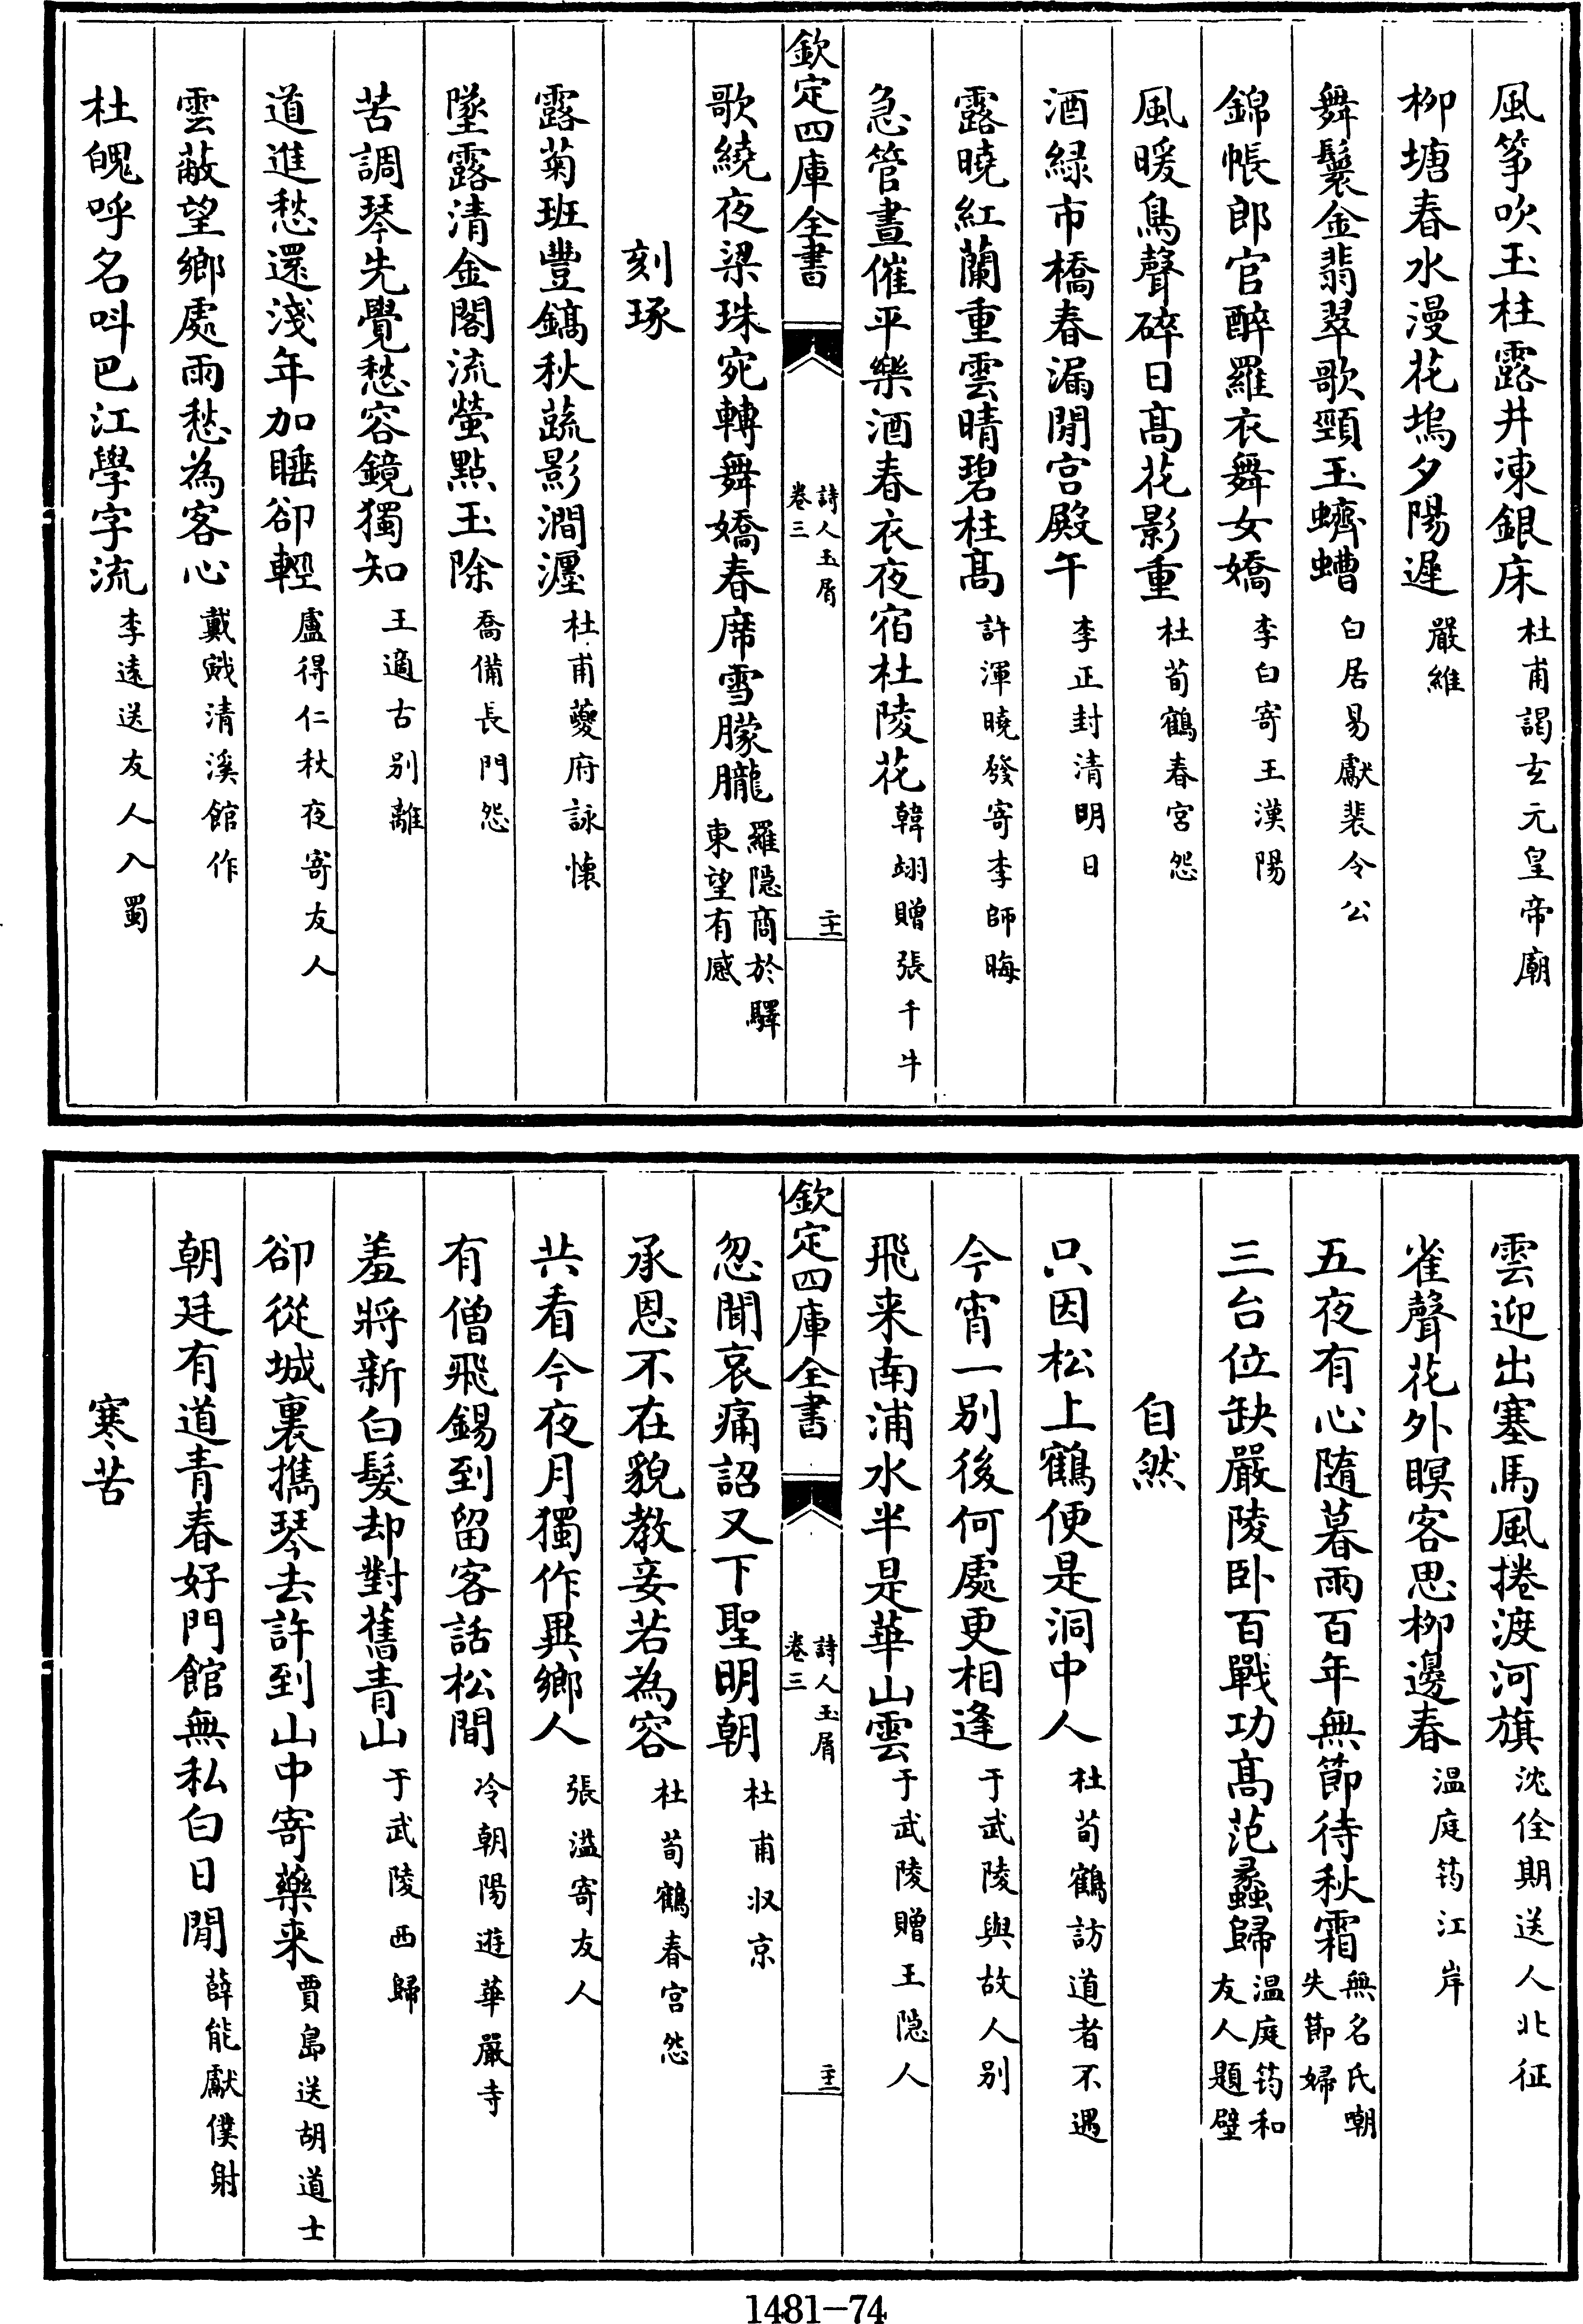 風筝吹玉柱露井凍銀床杜甫謁玄元皇帝廟
柳塘春水漫花塢夕陽遲嚴維
舞鬟金翡翠歌頸玉蠐螬白居易獻裴令公
錦帳郎官醉羅衣舞女嬌李白寄王漢陽
風暖鳥聲碎日髙花影重杜荀鶴春宮怨
酒緑市橋春漏閒宫殿午李正封清明日
露曉紅蘭重雲晴碧柱髙許渾曉發寄李師晦
急管晝催平樂酒春衣夜宿杜陵花韓翃贈張千牛
欽定四庫全書
詩人玉屑
卷三
歌繞夜梁珠宛轉舞嬌春席雪朦朧羅隐商於驛
東望有感
刻琢
露菊班豐鎬秋蔬影澗瀍杜甫夔府詠懐
墜露清金閣流螢點玉除喬備長門怨
苦調琴先覺愁容鏡獨知王適古别離
道進愁還淺年加睡卻輕盧得仁秋夜寄友人
雲蔽望鄉處雨愁為客心戴叔清溪館作
杜魄呼名呌巴江學字流李逺送友人入蜀
雲迎出塞馬風捲渡河旗沈佺期送人北征
雀聲花外暝客思柳邊春温庭筠江岸
五夜有心隨暮雨百年無節待秋霜無名氏嘲
失節婦
三台位缺嚴陵卧百戰功髙范蠡歸温庭筠和
友人題壁
自然
只因松上鶴便是洞中人杜荀鶴訪道者不遇
今宵一别後何處更相逢于武陵與故人别
飛来南浦水半是華山雲于武陵贈王隐人
欽定四庫全書
詩人玉屑
卷三
忽聞哀痛詔又下聖明朝杜甫収京
承恩不在貌教妾若為容杜荀鶴春宫怨
共看今夜月獨作異鄉人張溢寄友人
有僧飛錫到留客話松間冷朝陽遊華嚴寺
羞將新白髮却對舊青山于武陵西歸
卻從城裏攜琴去許到山中寄藥来賈島送胡道士
朝廷有道青春好門館無私白日閒薛能獻僕射
寒苦
1481-74